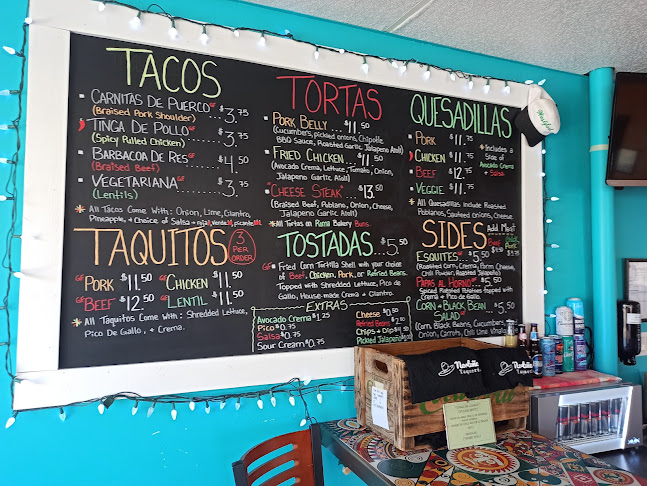 TACOS
CARNITAS DE PUERCO GF $3.75
(Braised Pork Shoulder)
TINGA DE POLLO GF $3.75
(Spicy Pulled Chicken)
BARBACOA DE RES GF $4.50
(Braised Beef)
VEGETARIANA GF $3.75
(Lentils)
* All Tacos Come With: Onion, Lime, Cilantro,
Pineapple, + Choice of Salsa
TAQUITOS 3 PER ORDER
GF PORK $11.50 GF CHICKEN $11.50
GF BEEF $12.50 GF LENTIL $11.50
* All Taquitos Come With: Shredded Lettuce,
Pico De Gallo, + Crema.
TORTAS
PORK BELLY ... $11.50
(Cucumbers, pickled onions, Chipotle
BBQ Sauce, Roasted Garlic Jalapeno Aioli)
FRIED CHICKEN ... $11.50
(Avocado Crema, Lettuce, Tomato, Onion,
Jalapeno Garlic Aioli)
CHEESE STEAK $13.50
(Braised Beef, Poblano, Onion, Cheese,
Jalapeno Garlic Aioli)
* All Tortas on Roma Bakery Buns.
TOSTADAS... $5.50
GF Fried Corn Tortilla Shell with your choice
of Beef, Chicken, Pork, or Refried Beans.
Topped with Shredded Lettuce, Pico de
Gallo, House-made Crema + Cilantro.
EXTRAS
Avocado Crema $1.25
Pico $0.75
Salsa $0.75
Sour Cream $0.75
Cheese $0.50
Refried Beans
Chips + Dip
Picked Jalapeño
QUESADILLAS
PORK $11.75
CHICKEN $11.75
BEEF $12.75
VEGGIE $11.75
* Includes a
Side of
Avocado Crema
+ Salsa
* All Quesadillas Include Roasted
Poblanos, Sauteed Onions, Cheese.
SIDES
Add Meat
Beef
ESQUITES $5.50
(Roasted Corn, Crema, Parm Cheese,
Chili Powder, Roasted Jalapeno)
PAPAS AL HORNO $5.50
Spiced Roasted Potatoes topped with
Crema + Pico de Gallo
CORN + BLACK BEAN
SALAD $5.50
(Corn, Black Beans, Cucumbers,
Onion, Carrots, Chili Lime Vinaigrette)